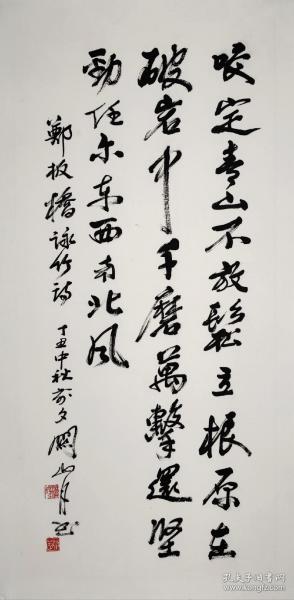 咬定青山不放鬆立根原在
破岩中千磨萬擊還堅
勁任尔东西南北风
鄭板橋詠竹詩
丁丑中秋前夕關山月书
孔夫子旧书网